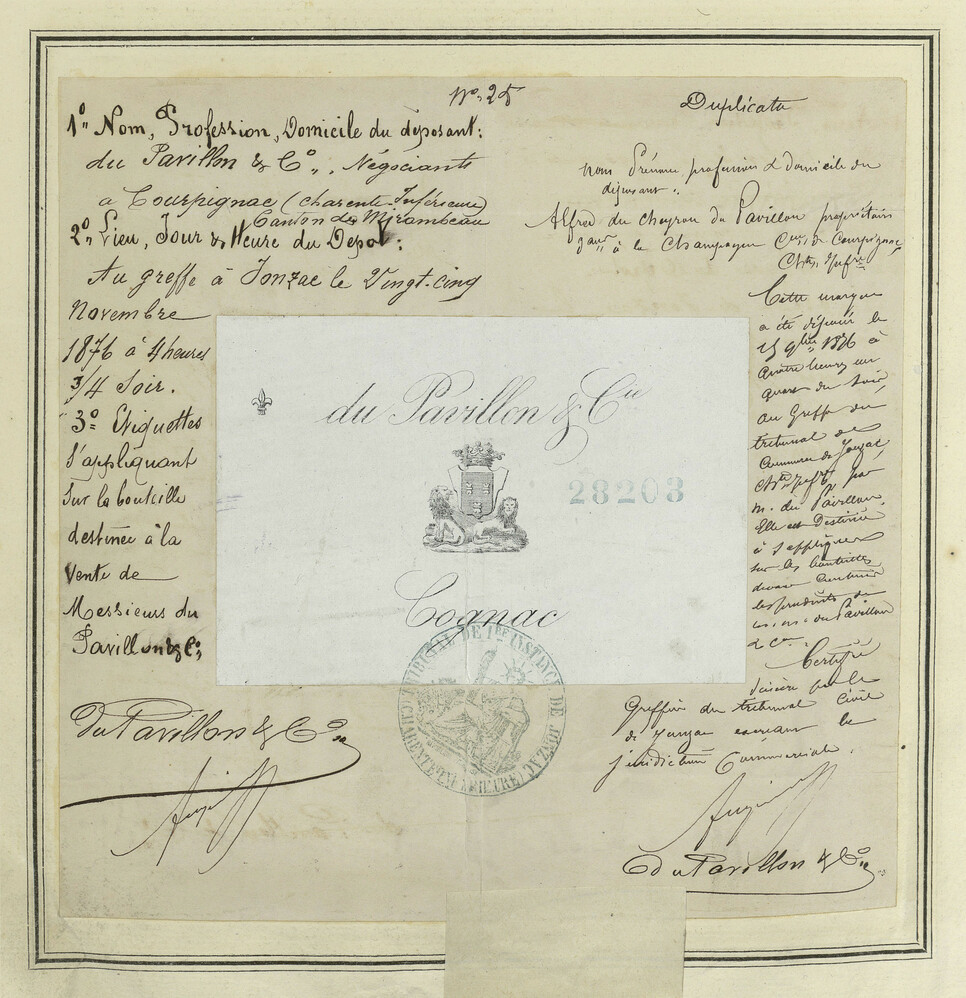 No. 25
1° Nom, Profession, Domicile du déposant:
du Pavillon & C°, Négociants
a Courpignac (Charente-Inférieure)
Canton de Mirambeau
2° Lieu, Jour & Heure du Depot:
Au greffe à Jonzac le Vingt-cinq
Novembre
1876 à 4 heures
3/4 Soir.
3° Etiquettes
s'appliquant
sur la bouteille
destinée à la
vente de
Messieurs du
Pavillon & C°,
Du Pavillon & C°
du Pavillon & Cie
28203
Cognac
TRIBUNAL DE 1RE INSTANCE DE JONZAC
(CHARENTE INFERIEURE)
Duplicata
Nom Prénoms profession & domicile du
déposant.
Alfred du Cheyron du Pavillon propriétaire
à la Champagne Cne de Courpignac,
Chte Infre
Cette marque
a été déposée le
25 9bre 1876 à
quatre heures un
quart du soir,
au Greffe du
tribunal de
Commerce de Jonzac,
Chte Infre par
M. du Pavillon.
Elle est destinée
à s'appliquer
sur les bouteilles
devant contenir
les produits de
du Pavillon
& Cie
Certifié
sincère par le
Greffier du tribunal Civil
de Jonzac exerçant la
juridiction Commerciale.
Du Pavillon & C°